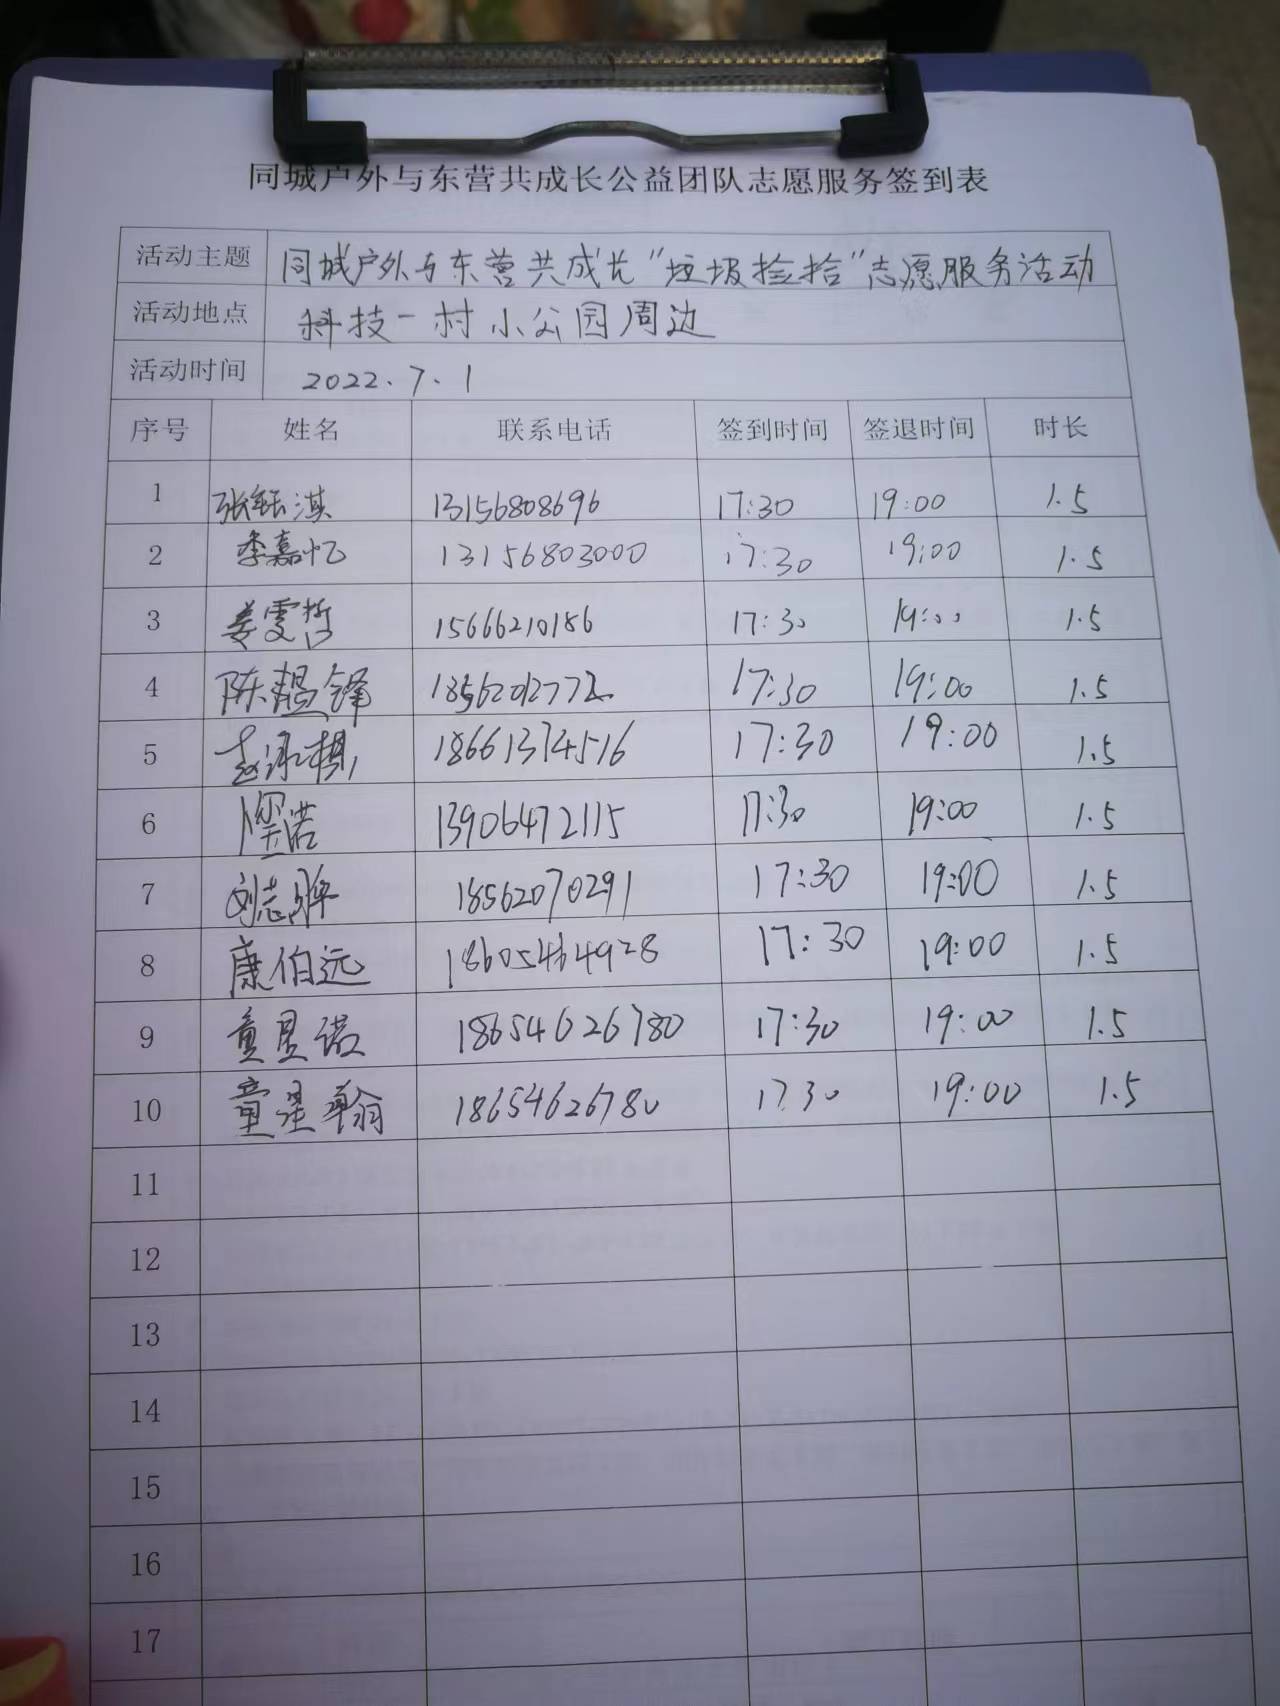 同城户外与东营共成长公益团队志愿服务签到表
活动主题 同城户外与东营共成长“垃圾捡拾”志愿服务活动
活动地点 科技一村小公园周边
活动时间 2022.7.1
序号 姓名 联系电话 签到时间 签退时间 时长
1 张钰淇 13156808696 17:30 19:00 1.5
2 李嘉忆 13156803000 17:30 19:00 1.5
3 姜雯哲 15666210186 17:30 19:00 1.5
4 陈韫锋 18562012772 17:30 19:00 1.5
5 18661374516 17:30 19:00 1.5
6 13906472115 17:30 19:00 1.5
7 刘志 18562070291 17:30 19:00 1.5
8 康伯远 17:30 19:00 1.5
9 童星诺 18654626780 17:30 19:00 1.5
10 童星翰 18654626780 17 30 19:00 1.5
11
12
13
14
15
16
17